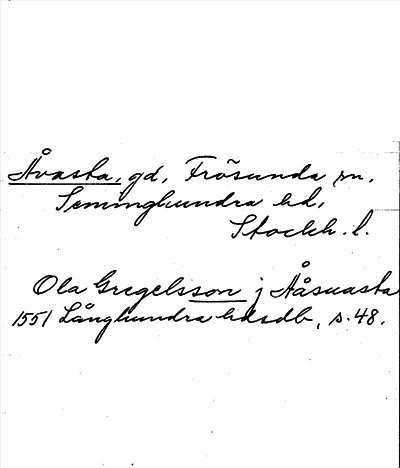 Åvasta, gd, Frösunda sn,
Seminghundra hd,
Stockh. l.
Ola Gregelsson j Håsuasta
1551 Långhundra hdsdb, s. 48.